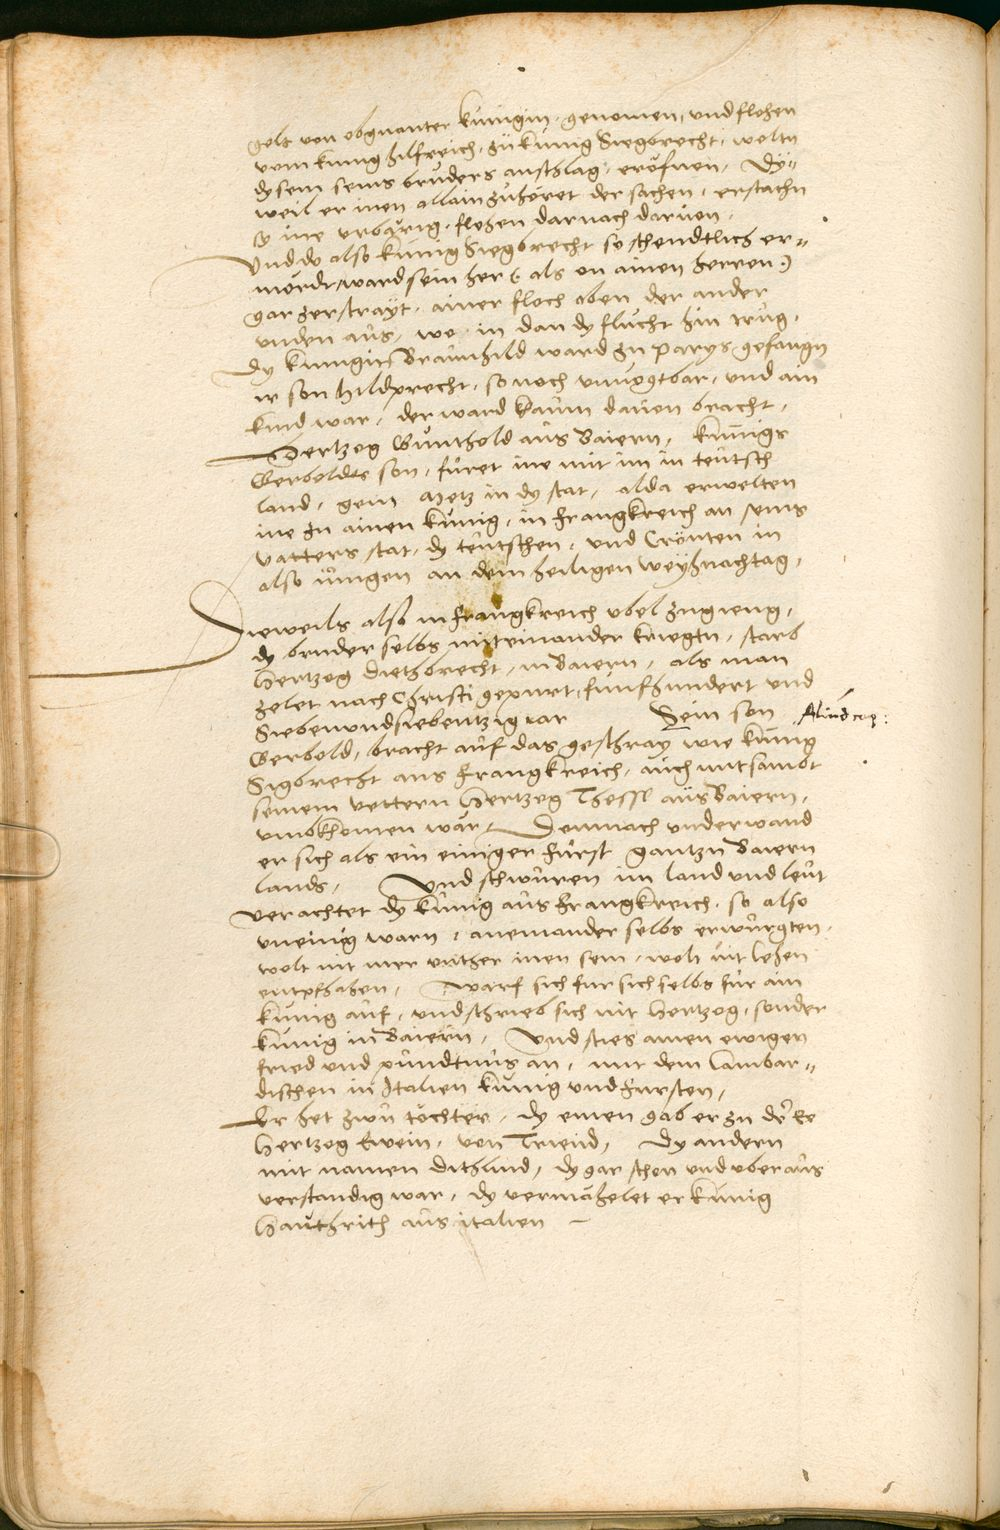 gelt von obgnanter künigin genomen, und flohen
vom künig hilfreich, zu künig Siegbrecht, woltn
dysem seins bruders anschlag, eröfnen, Dy⸗
weil er inen allain zuhöret der sachen, erstachn
sy ine urbaring, flohen darnach darven.
Und do also künig Siegbrecht so schendtlich er⸗
mördt, ward sein her (als on ainen herren)
gar zerstrayt, ainer floch oben der ander
unden aus, wo in dan dy flucht hin trug.
Dy künigin Braunhild ward zu parys gefangn
ir son hildprecht, so noch unvogtbar, und ain
kind war, der ward kaum daven bracht,
Hertzog Gunthold aus Baiern, künigs
Gerbolds son, füret ine mit im in teutsch
land, gem Metz in dy stat, alda erwelten
ine zu ainen künig, in frangkreich an seins
vatters stat, dy teutschen, und Crönten in
also iungen an dem heiligen weyhnachtag,
Dieweils also in frangkreich ubel zugieng,
dy bruder selbs miteinander kriegtn, starb
Hertzog Diethbrecht, in Baiern, als man
zelet nach Christi gepurt, funfhundert und
Siebenundsiebentzig iar Sein son
Gerbold, bracht auf das geschray wie künig
Sigbrecht aus frangkreich, auch mitsambt
seinem vettern Hertzog Thessl aus Baiern,
umbkhomen war, Demnach underwand
er sich als ein einiger fürst gantzn Baiern
lands, Und schwuren im land und leut
verachtet dy künig aus frangkreich, so also
uneinig warn, aneinander selbs erwürgten,
wolt nit mer unther inen sein, wolt nit lehen
entpfhahen, warf sich fur sich selbs für ain
künig auf, und schrieb sich nit Hertzog, sonder
künig in Baiern, Und sties ainen ewigen
frid und pündtnus an, mit dem Lambar⸗
dischen in Italien künig und fursten,
Er het zwu töchter, dy einen gab er zu der Ee
Hertzog Ewein, von Triend, Dy andern
mit namen Dithlind, dy gar schon und uberaus
verstandig war, dy vermähelet er künig
Hauthrith aus italien